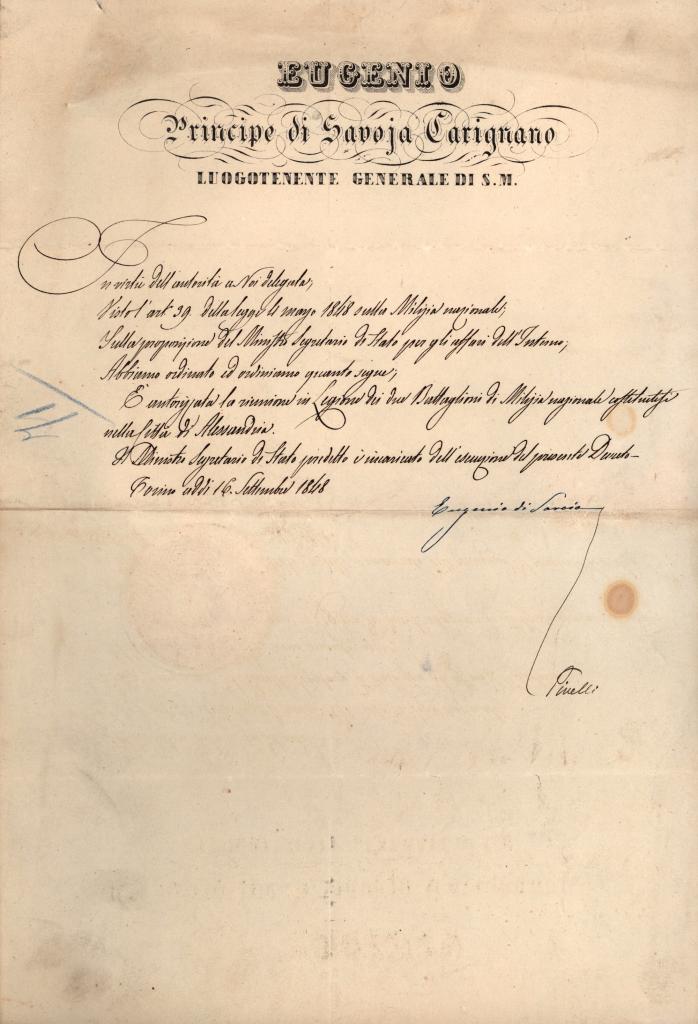 EUGENIO
Principe di Savoja Carignano
LUOGOTENENTE GENERALE DI S.M.
In virtù dell'autorità a Noi delegata;
Visto l'art. 39 della legge 4 marzo 1848 sulla Milizia nazionale;
Sulla proposizione del Ministro Segretario di Stato per gli affari dell'Interno;
Abbiamo ordinato ed ordiniamo quanto segue;
È autorizzata la riunione in Legione dei due Battaglioni di Milizia nazionale costituitisi
nella Città di Alessandria.
Il Ministro Segretario di Stato predetto è incaricato dell'esecuzione del presente Decreto.
Torino addì 16. Settembre 1848
Eugenio di Savoia
Pinelli